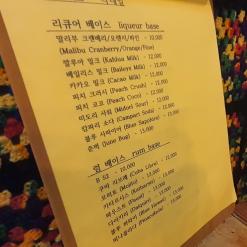 칵테일
리큐어 베이스 liqueur base
말리부 크랜베리/오렌지/파인 - 12,000
(Malibu Cranberry/Orange/Pine)
깔루아 밀크 (Kahlua Milk) - 12,000
베일리스 밀크 (Baileys Milk) - 12,000
카카오 밀크 (Cacao Milk) - 12,000
피치 크러시 (Peach Crush) - 12,000
피치 코코 (Peach Coco) - 12,000
미도리 사워 (Midori Sour) - 13,000
캄파리 소다 (Campari Soda) - 13,000
블루 사파이어 (Blue Sapphire) - 13,000
준벅 (June Bug) - 13,000
럼 베이스 rum base
B 53 - 10,000
쿠바 리브레 (Cuba Libre) - 12,000
모히토 (Mojito) - 13,000
마이타이
다이키리 (Daiquiri) - 13,000
블루 하와이 (Blue Hawaii) - 13,000
피나콜라다